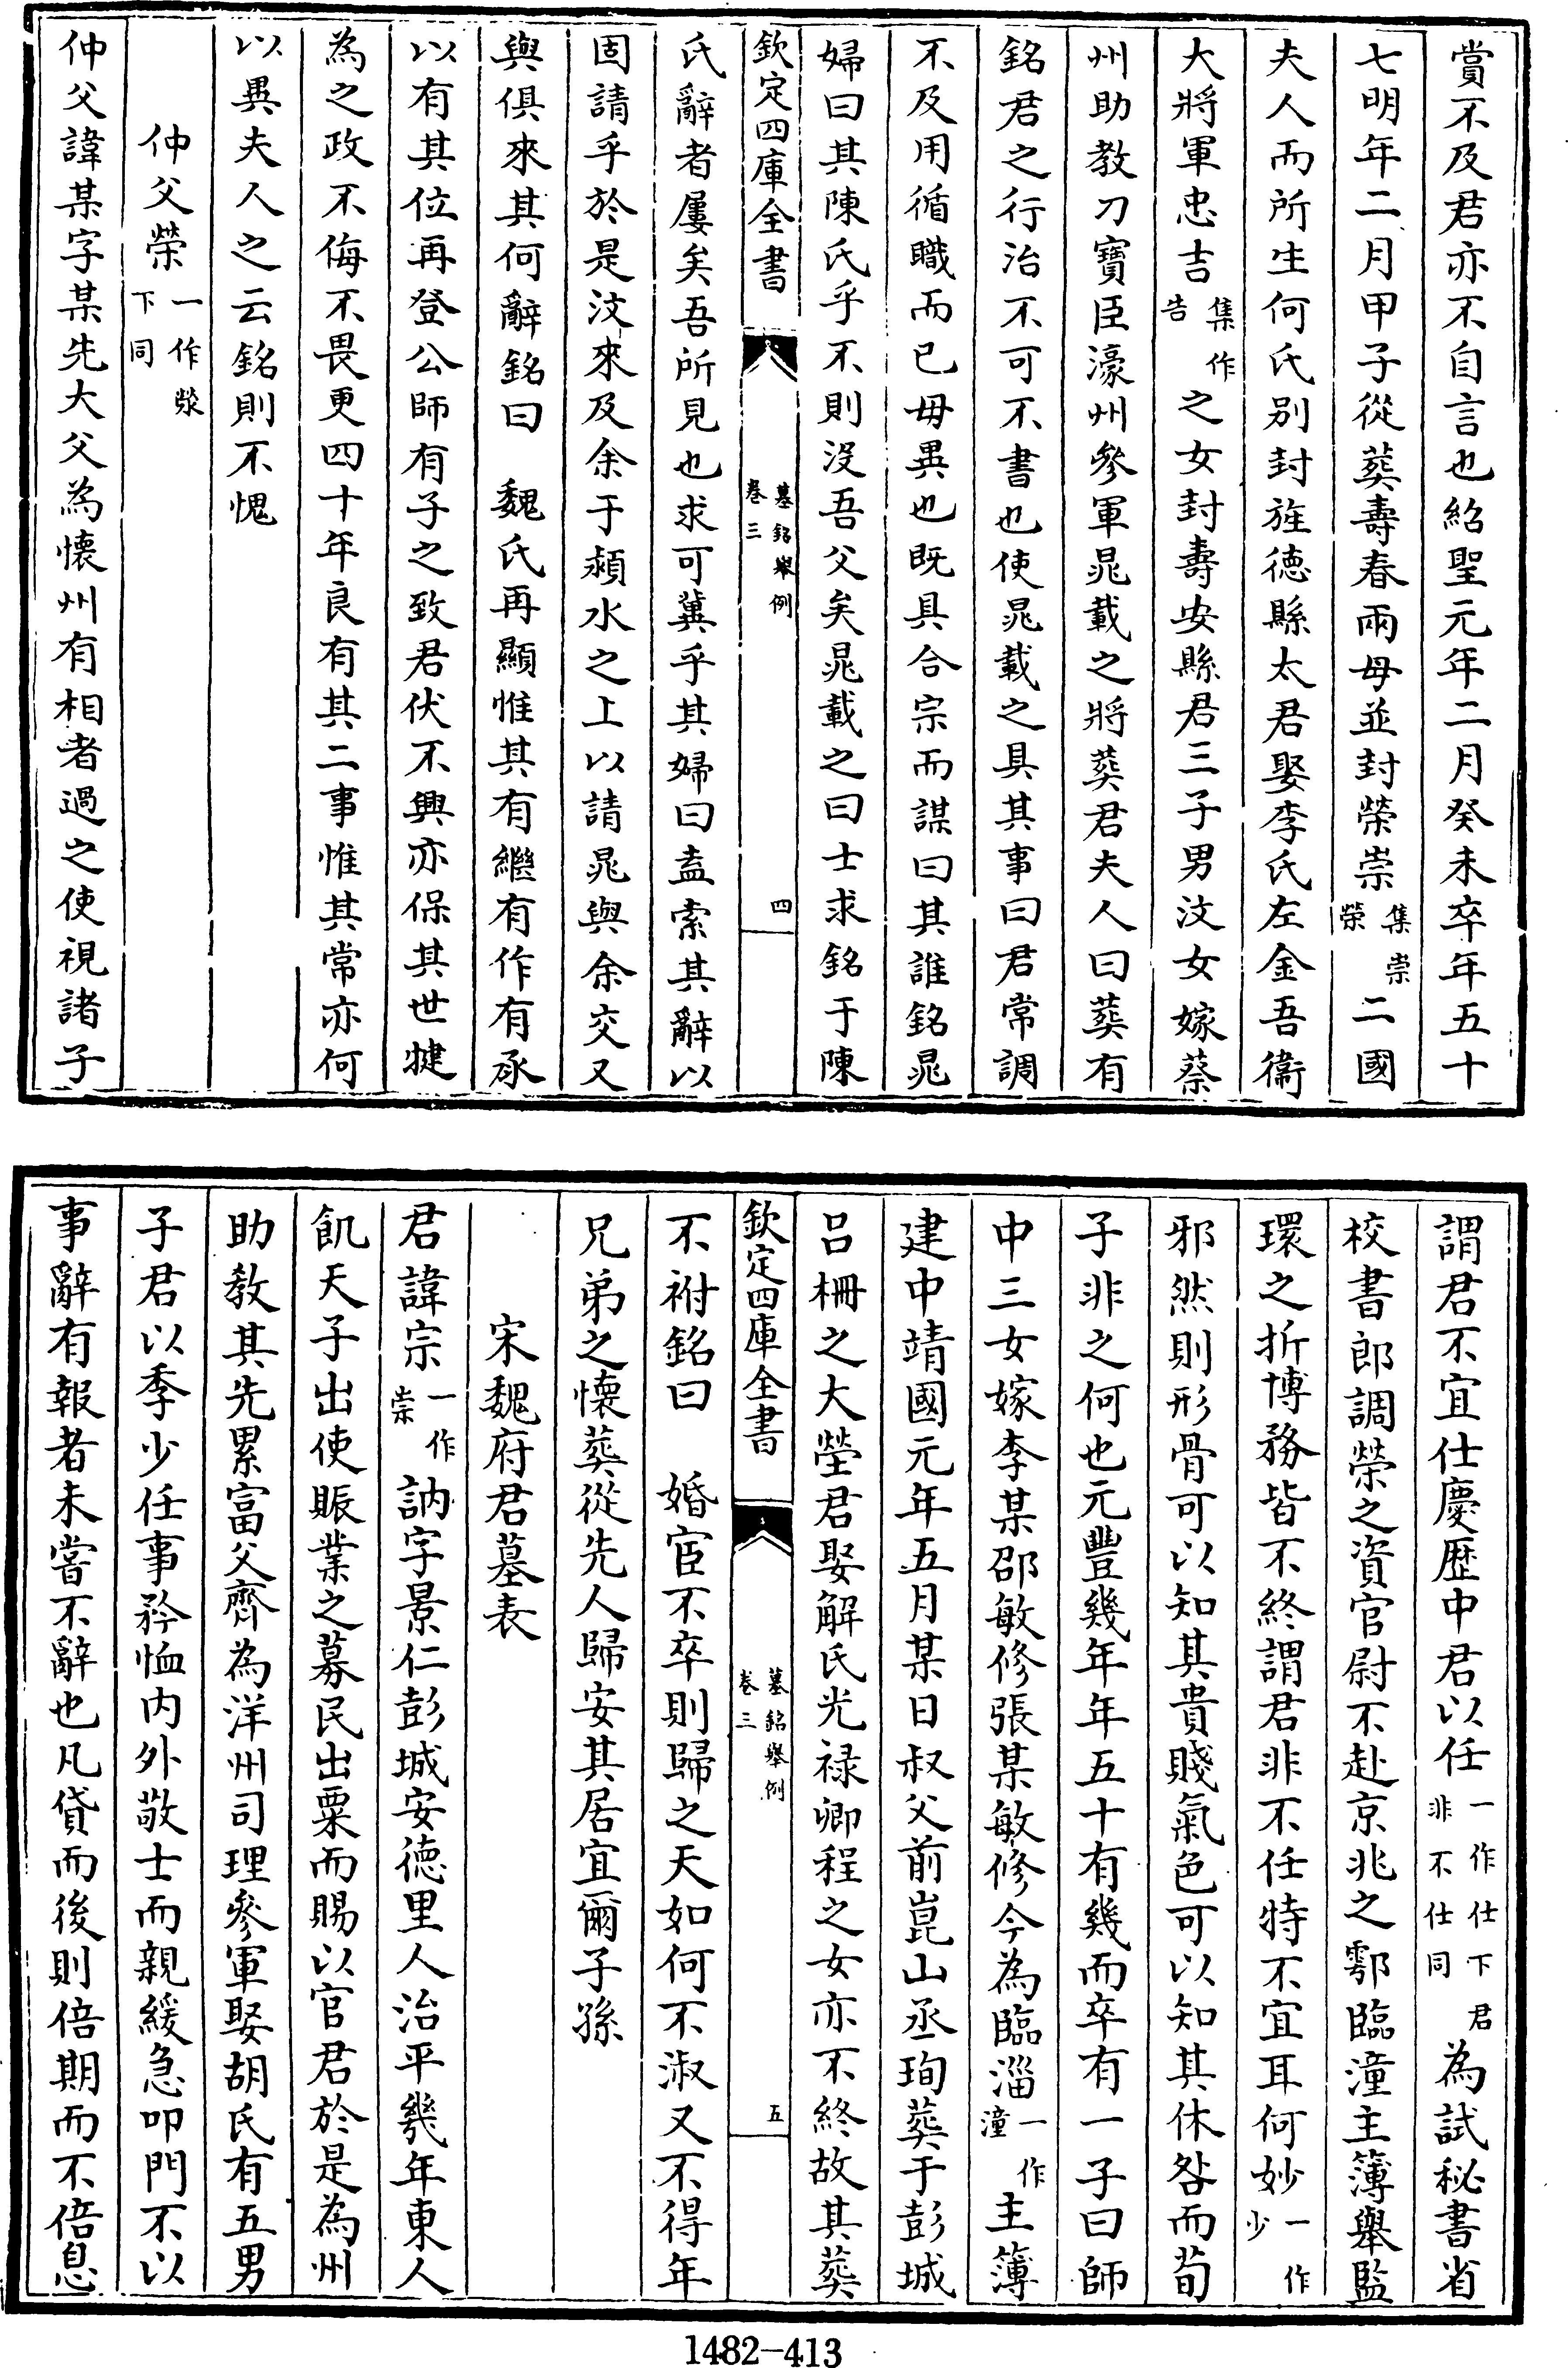 賞不及君亦不自言也紹聖元年二月癸未卒年五十
七明年二月甲子從葬壽春兩母並封榮崇集崇榮二國
夫人而所生何氏別封旌徳縣太君娶李氏左金吾衞
大將軍忠吉集作告之女封壽安縣君三子男汶女嫁蔡
州助教刀寶臣濠州參軍晁載之將葬君夫人曰葬有
銘君之行治不可不書也使晁載之具其事曰君常調
不及用循職而已毋異也既具合宗而謀曰其誰銘晁
婦曰其陳氏乎不則沒吾父矣晁載之曰士求銘于陳
欽定四庫全書
墓銘舉例
卷三
四
氏辭者屢矣吾所見也求可冀乎其婦曰盍索其辭以
固請乎於是汶來及余于潁水之上以請晁與余交又
與俱來其何辭銘曰　魏氏再顯惟其有繼有作有承
以有其位再登公師有子之致君伏不興亦保其世揵
為之政不侮不畏更四十年良有其二事惟其常亦何
以異夫人之云銘則不愧
仲父榮一作滎下同
仲父諱某字某先大父為懷州有相者過之使視諸子
謂君不宜仕慶歷中君以任一作仕下君非不仕同為試秘書省
校書郎調滎之資官尉不赴京兆之鄠臨潼主簿舉監
環之折博務皆不終謂君非不任特不宜耳何妙一作少
邪然則形骨可以知其貴賤氣色可以知其休咎而荀
子非之何也元豐幾年年五十有幾而卒有一子曰師
中三女嫁李某邵敏修張某敏修今為臨淄一作潼主簿
建中靖國元年五月某日叔父前崑山丞珣葬于彭城
呂柵之大塋君娶解氏光禄卿程之女亦不終故其葬
欽定四庫全書
墓銘舉例
卷三
五
不祔銘曰　婚宦不卒則歸之天如何不淑又不得年
兄弟之懷葬從先人歸安其居宜爾子孫
宋魏府君墓表
君諱宗一作崇訥字景仁彭城安徳里人治平幾年東人
飢天子出使賑業之募民出粟而賜以官君於是為州
助教其先累富父齊為洋州司理參軍娶胡氏有五男
子君以季少任事矜恤内外敬士而親緩急叩門不以
事辭有報者未嘗不辭也凡貸而後則倍期而不倍息
1482-413